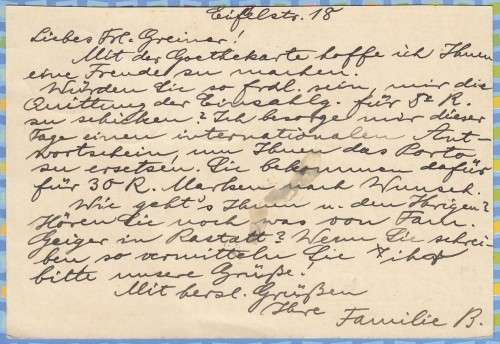 Eifelstr. 18
Liebes Frl. Greiner!
Mit der Goethekarte hoffe ich Ihnen
eine Freude zu machen.
Würden Sie so frdl. sein, mir die
Quittung der Einzahlg. für 82 R.
zu schicken? Ich besorge mir dieser
Tage einen internationalen Ant-
wortschein, um Ihnen das Porto
zu ersetzen. Sie bekommen dafür
für 30 R. Marken nach Wunsch.
Wie geht's Ihnen u. den Ihrigen?
Hören Sie noch was von Fam.
Geiger in Rastatt? Wenn Sie schrei-
ben so vermitteln Sie
bitte unsere Grüße!
Mit herzl. Grüßen
Ihre Familie B.